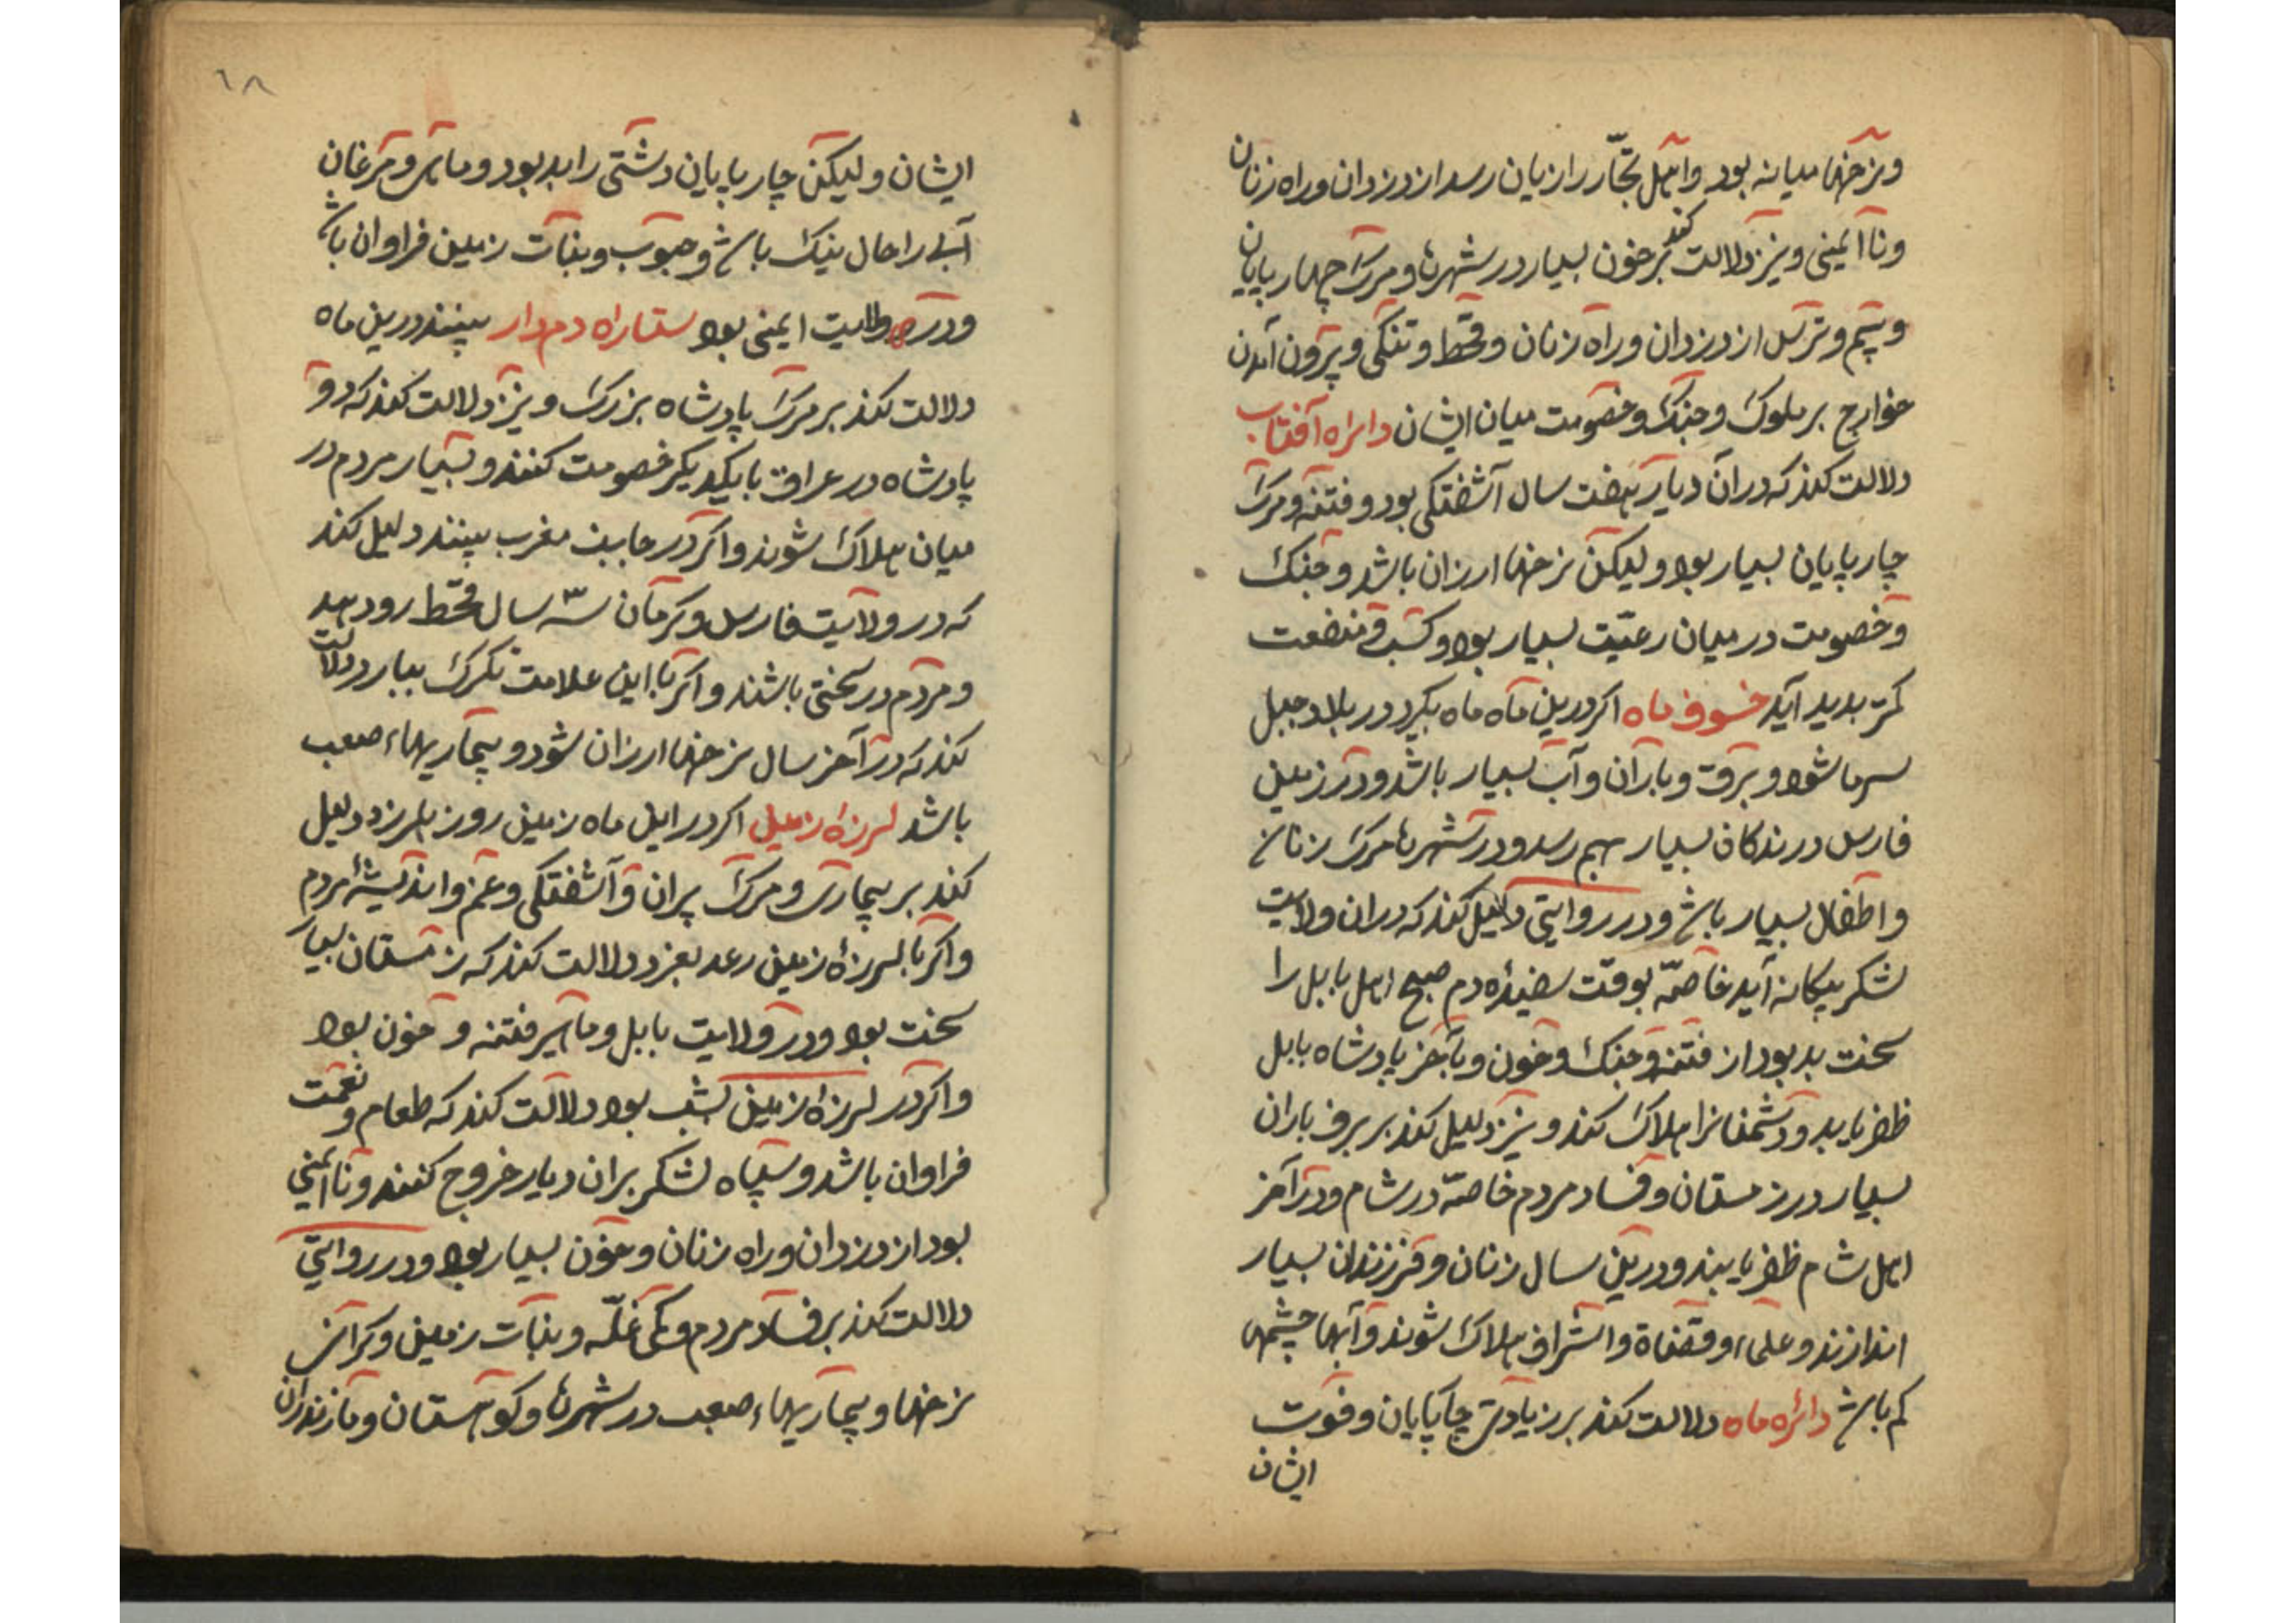 ونرخها میانه بود واهل تجّار را زیان رسد از دزدان وراه زنان
ونا ایمنی ونیز دلالت کند بر خون بسیار در شهرها ومرک چهارپایان
وبیم وترس از دزدان وراه زنان وقحط وتنکی وبیرون آمدن
خوارج بر ملوک وجنک وخصومت میان ایشان دایره آفتاب
دلالت کند که دران دیار هفت سال آشفتکی بود وفتنه ومرک
چارپایان بسیار بود ولیکن نرخها ارزان باشد وجنک
وخصومت در میان رعیّت بسیار بود وکسب ومنفعت
کمتر بدید آید خسوف ماه اکر درین ماه ماه بکیرد در بلاد جبل
سرما شود وبرف وباران وآب بسیار باشد ودر زمین
فارس درندکان بسیار بهم رسد ودر شهرها مرک زنان
واطفال بسیار باشد ودر روایتی دلیل کند که دران ولایت
لشکر بیکانه آید خاصّه بوقت سفیده دم صبح اهل بابل را
سخت بد بود از فتنه وجنک وخون وبآخر پادشاه بابل
ظفر یابد ودشمنانرا هلاک کند ونیز دلیل کند بر برف باران
بسیار در زمستان وفساد مردم خاصّه در شام ودر آخر
اهل شام ظفر یابند ودرین سال زنان وفرزندان بسیار
اندازند وعلماء وقضاة واشراف هلاک شوند وآبها چشمها
کم باشد دائره ماه دلالت کند بر زیادتی چاپایان وفوت
ایشان
٦٨
ایشان ولیکن چارپایان دشتی را بد بود وماهی ومرغان
آبی را حال نیک باشد وحبوب ونبات زمین فراوان باشد
ودر ولایت ایمنی بود ستاراه دم دار بینند درین ماه
دلالت کند بر مرک پادشاه بزرک ونیز دلالت کند که دو
پادشاه در عراق با یکدیکر خصومت کنند وبسیار مردم در
میان هلاک شوند واکر در جانب مغرب بینند دلیل کند
که در ولایت فارس وکرمان سه سال قحط رو دهد
ومردم در سختی باشند واکر با این علامت تکرک ببارد دلالت
کند که در آخر سال نرخها ارزان شود وبیماریهاء صعب
باشد لرزه زمین اکر در این ماه زمین روز بلرزد دلیل
کند بر بیماری ومرک پیران وآشفتکی وغم واندیشهٔ مردم
واکر با لرزهٔ زمین رعد بغرد دلالت کند که زمستان بسیار
سخت بود ودر ولایت بابل وما فتنه وخون بود
واکر در لرزه زمین بشب بود دلالت کند که طعام ونعمت
فراوان باشد وسپاه لشکر بران دیار خروج کنند ونا ایمنی
بود از دزدان وراه زنان وخون بسیار بود ودر روایتی
دلالت کند بر فساد مردم وکمی غلّه ونبات زمین وکرانی
نرخها وبیماریهاء صعب در شهرها وکوهستان ومازندران